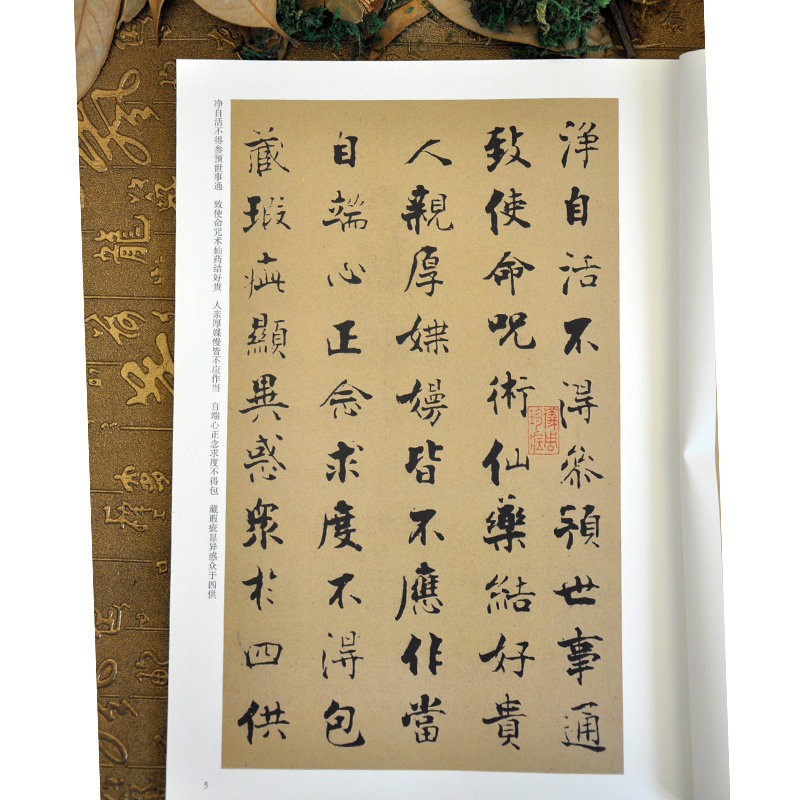 淨自活不得參預世事通
致使命呪術仙藥結好貴
人親厚媟嫚皆不應作當
自端心正念求度不得包
藏瑕疵顯異惑衆於四供
净自活不得参预世事通 致使命咒术仙药结好贵 人亲厚媟慢皆不应作当 自端心正念求度不得包 藏瑕疵显异惑众于四供
5